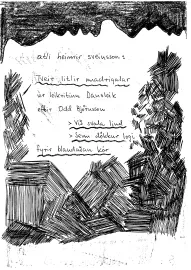 atli heimir sveinsson:
Tveir litlir madrigalar
úr leikritinu Dansleik
eftir Odd Björnsson
> Við svala lind
> Sem dökkur logi
fyrir blandaðan kór